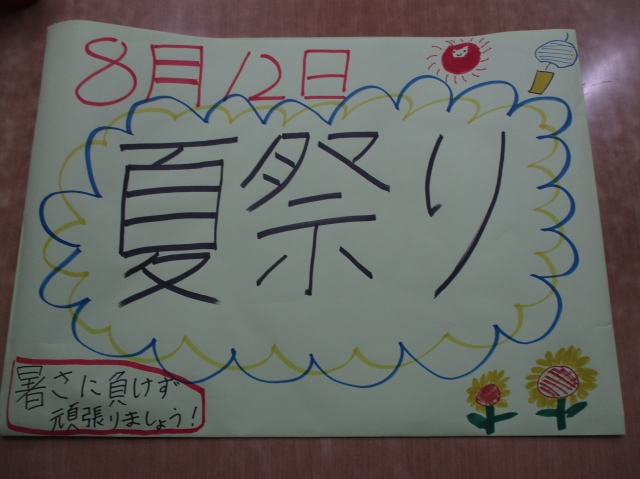 8月12日
夏祭り
暑さに負けず
頑張りましょう!